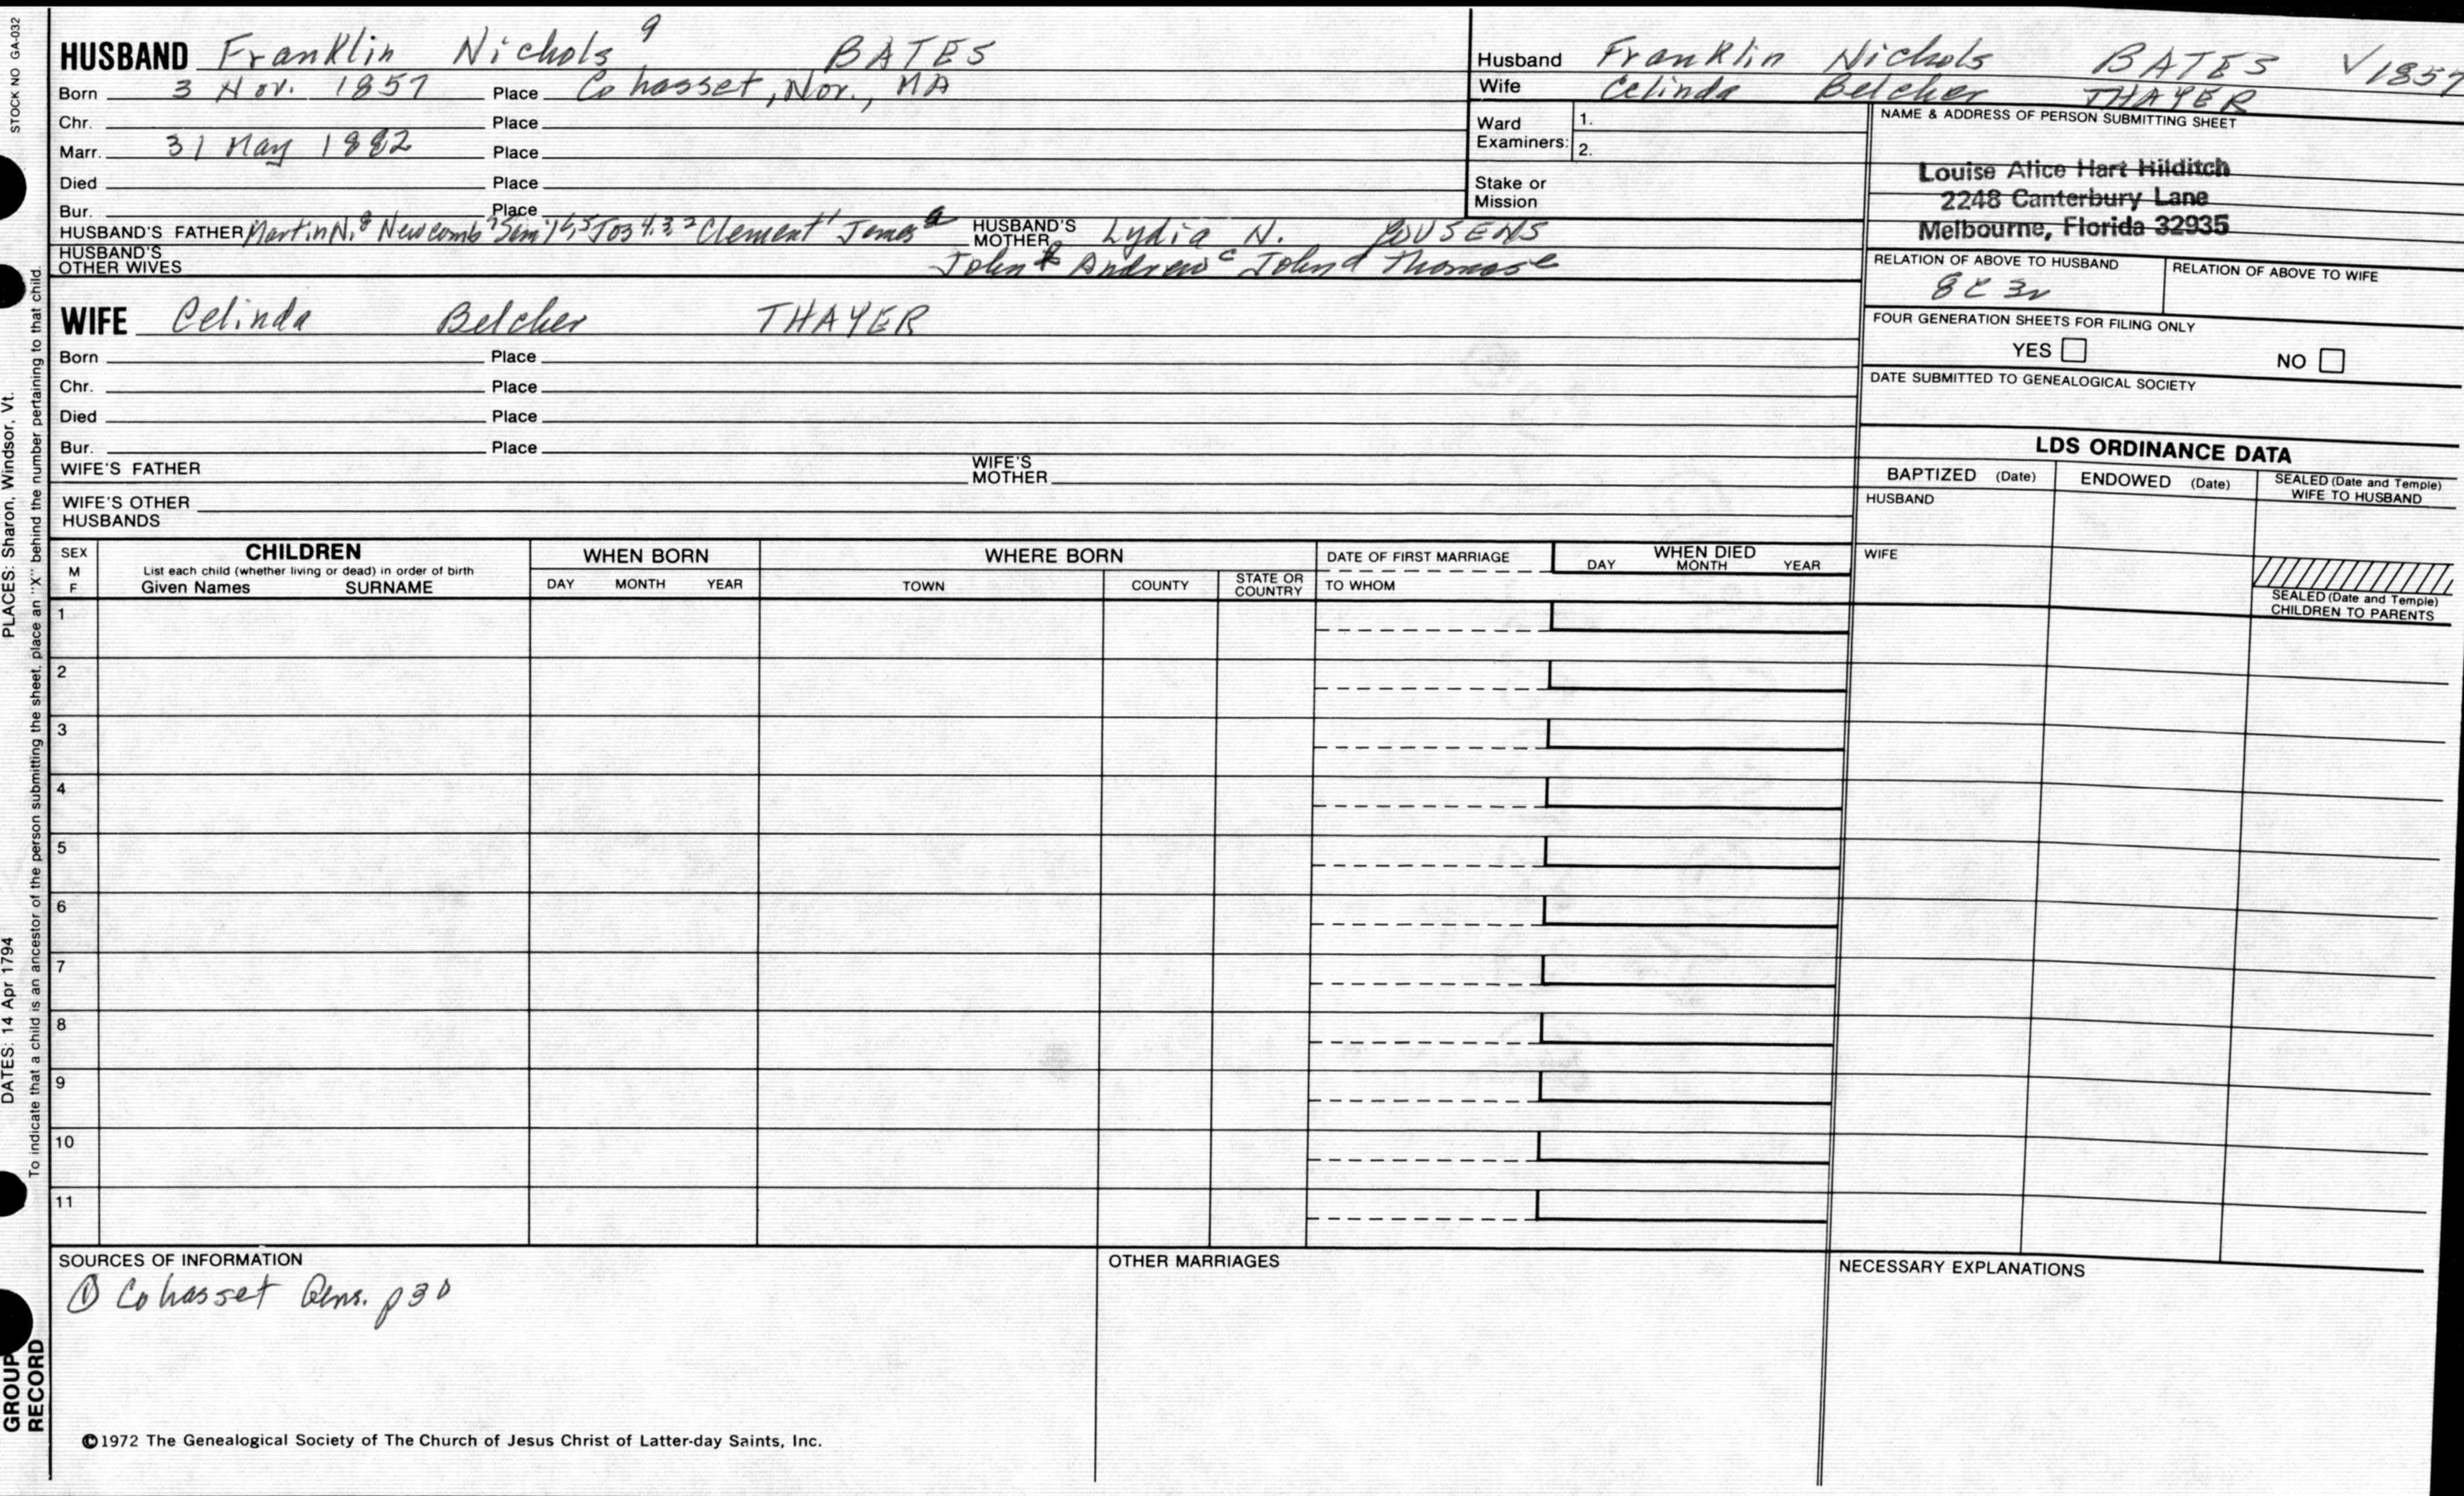 STOCK NO GA-032
PLACES: Sharon, Windsor, Vt.
DATES: 14 Apr 1794
To indicate that a child is an ancestor of the person submitting the sheet, place an "X" behind the number pertaining to that child.
GROUP
RECORD
HUSBAND Franklin Nichols 9 BATES
Born 3 Nov. 1857 Place Cohasset, Nor., MA
Chr. Place
Marr. 31 May 1882 Place
Died Place
Bur. Place
HUSBAND'S FATHER Martin N. 8 Newcomb 7 Jos 4,3,2 Clement 1 James a HUSBAND'S MOTHER Lydia N.
HUSBAND'S OTHER WIVES John Andrew c John d Thomas e
WIFE Celinda Belcher THAYER
Born Place
Chr. Place
Died Place
Bur. Place
WIFE'S FATHER WIFE'S MOTHER
WIFE'S OTHER HUSBANDS
Husband Franklin Nichols BATES V1857
Wife Celinda Belcher THAYER
Ward Examiners: 1.
2.
Stake or Mission
NAME & ADDRESS OF PERSON SUBMITTING SHEET
Louise Alice Hart Hilditch
2248 Canterbury Lane
Melbourne, Florida 32935
RELATION OF ABOVE TO HUSBAND RELATION OF ABOVE TO WIFE
8C3r
FOUR GENERATION SHEETS FOR FILING ONLY
YES NO
DATE SUBMITTED TO GENEALOGICAL SOCIETY
LDS ORDINANCE DATA
BAPTIZED (Date) ENDOWED (Date) SEALED (Date and Temple) WIFE TO HUSBAND
HUSBAND
WIFE
SEALED (Date and Temple) CHILDREN TO PARENTS
SEX M F
CHILDREN
List each child (whether living or dead) in order of birth
Given Names SURNAME
WHEN BORN
DAY MONTH YEAR
WHERE BORN
TOWN COUNTY STATE OR COUNTRY
DATE OF FIRST MARRIAGE
TO WHOM
WHEN DIED
DAY MONTH YEAR
1
2
3
4
5
6
7
8
9
10
11
SOURCES OF INFORMATION
① Cohasset Gens. p30
OTHER MARRIAGES
NECESSARY EXPLANATIONS
©1972 The Genealogical Society of The Church of Jesus Christ of Latter-day Saints, Inc.